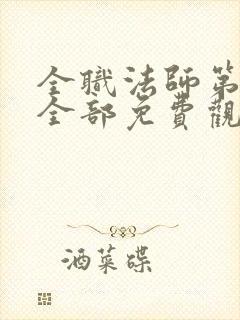 全職法師第
全部免費觀
酒菜碟